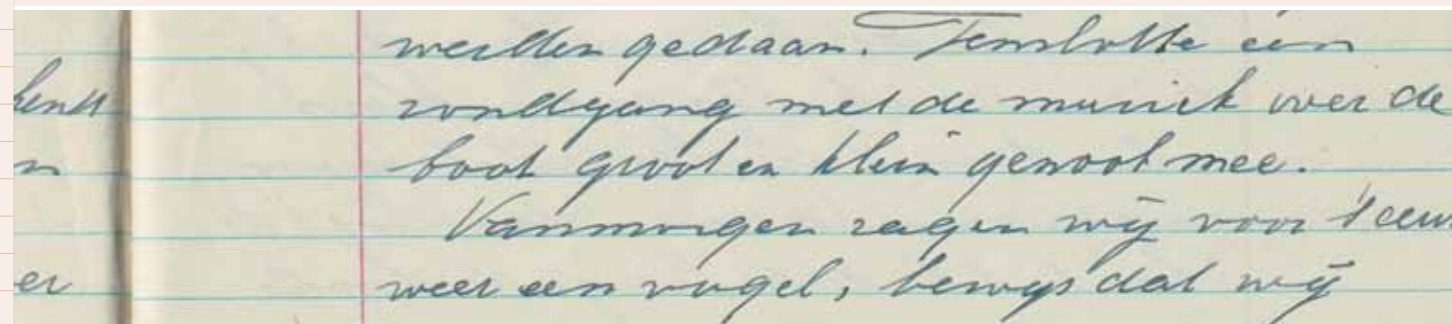 werden gedaan. Tenslotte een
rondgang met de muziek over de
boot groot en klein genoot mee.
Vanmorgen zagen wij voor 't eerst
weer een vogel, bewijs dat wij
er